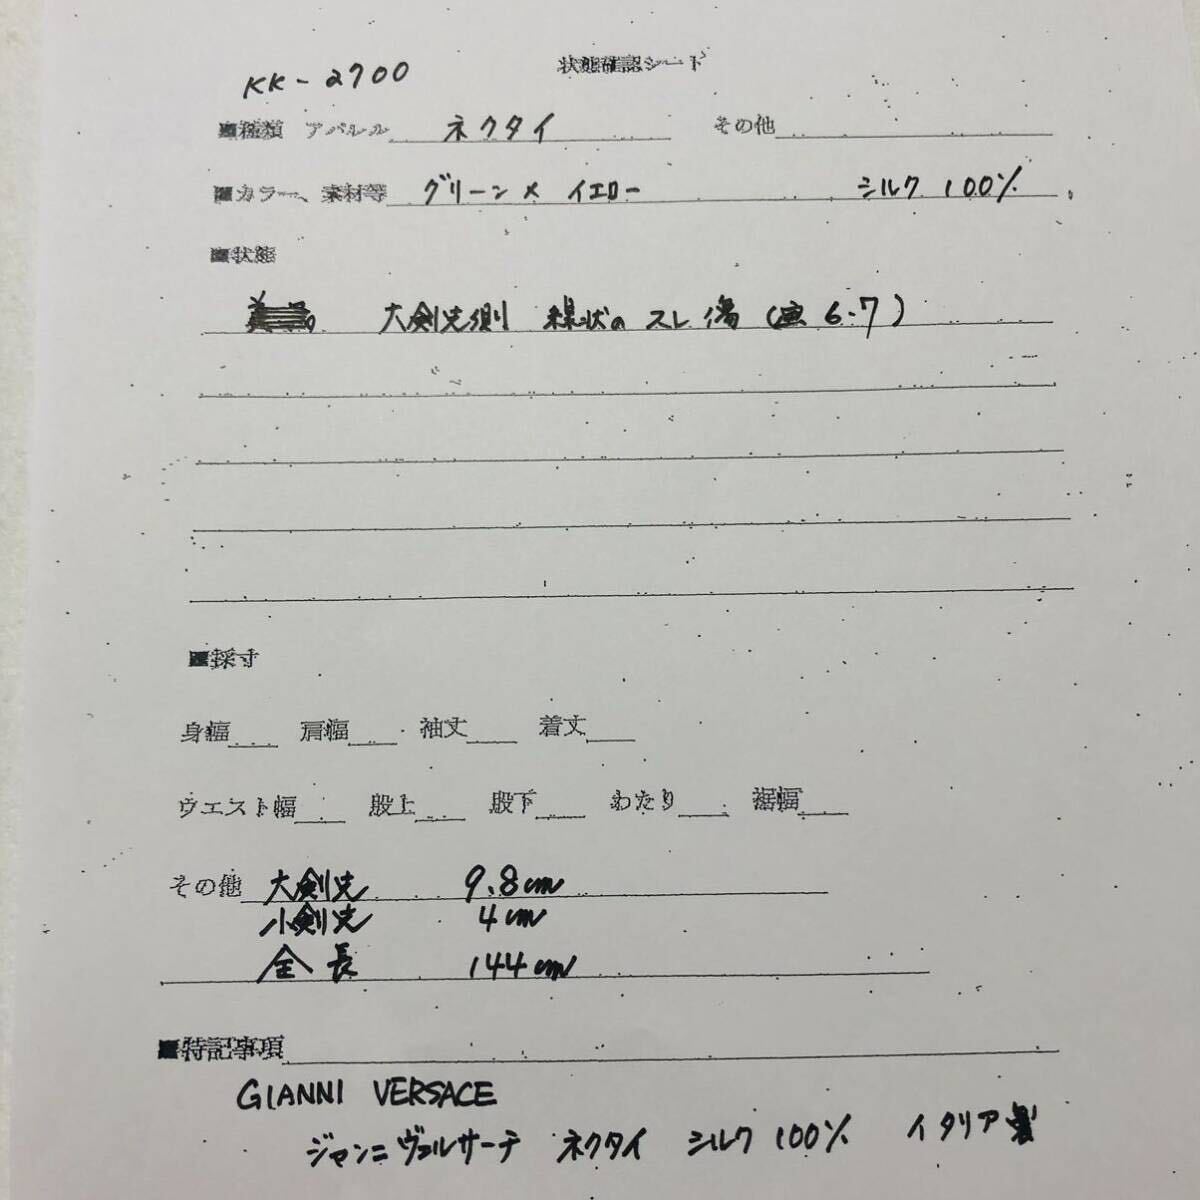 状態確認シート
KK-2700
■種類 アパレル ネクタイ その他
■カラー、素材等 グリーン× イエロー シルク 100%
■状態
大剣先側 線状の スレ傷 (画 6.7)
■採寸
身幅 肩幅 袖丈 着丈
ウエスト幅 股上 股下 わたり 裾幅
その他 大剣先 9.8cm
小剣先 4cm
全長 144cm
■特記事項
GIANNI VERSACE
ジャンニ ヴェルサーチ ネクタイ シルク 100% イタリア製